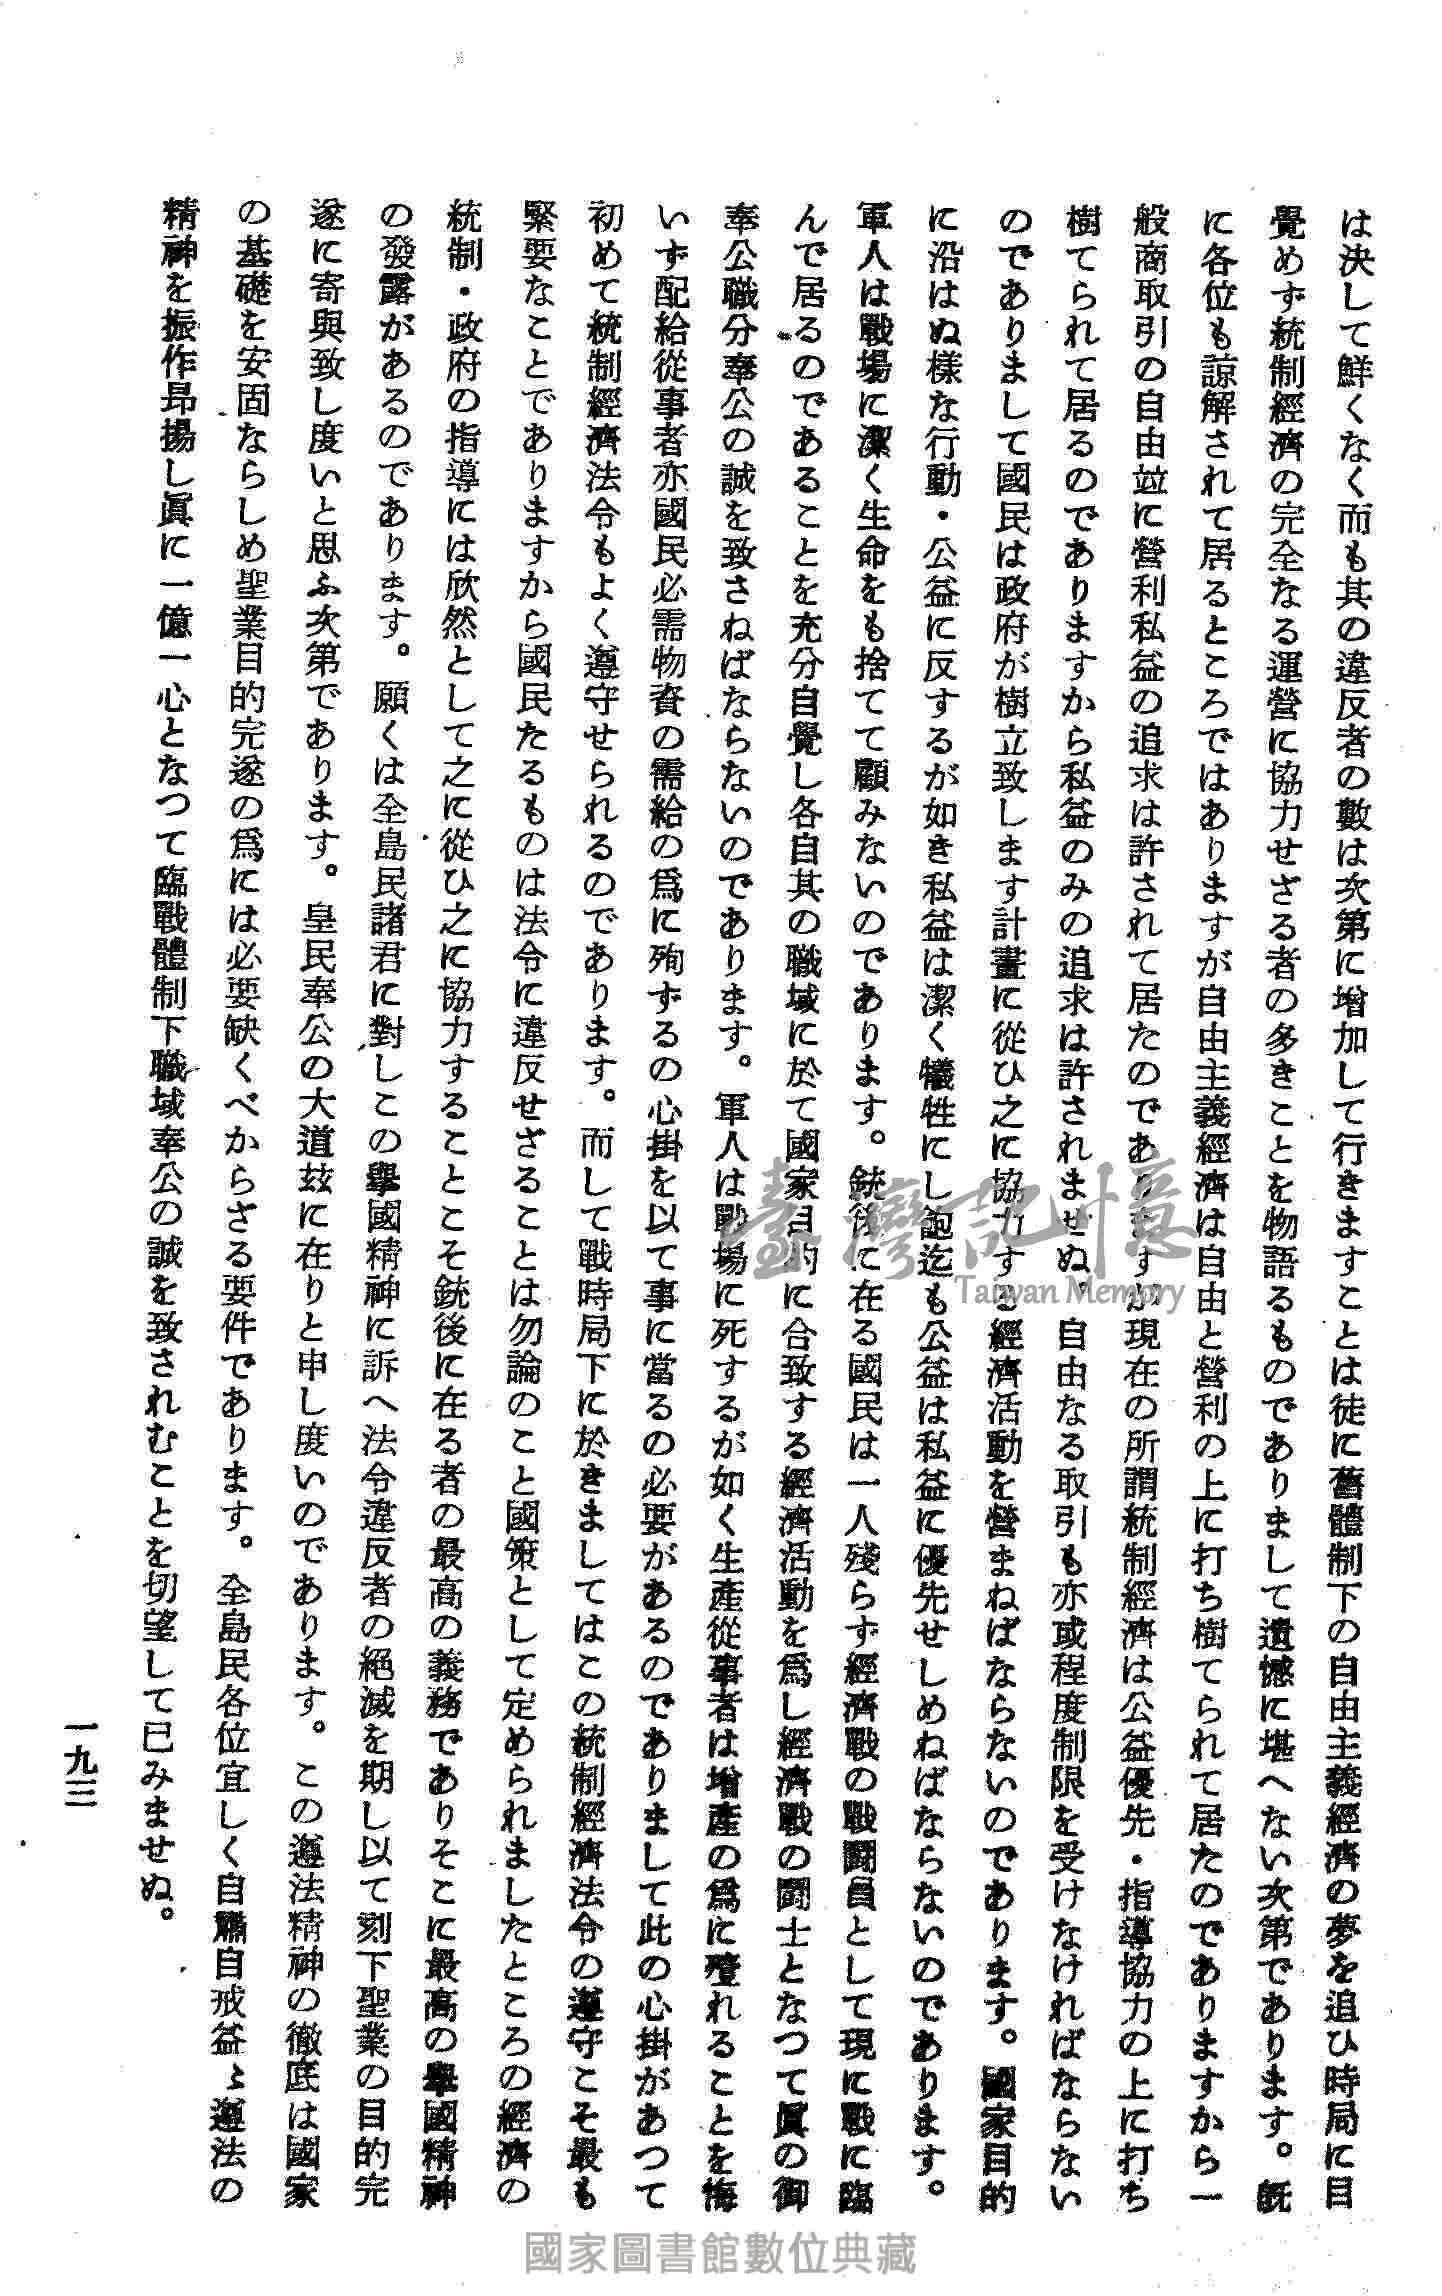 は決して鮮くなく而も其の違反者の數は次第に增加して行きますことは徒に舊體制下の自由主義經濟の夢を追ひ時局に目
覺めず統制經濟の完全なる運營に協力せざる者の多きことを物語るものでありまして遺憾に堪へない次第であります。既
に各位も諒解されて居るところではありますが自由主義經濟は自由と營利の上に打ち樹てられて居たのでありますから一
般商取引の自由竝に營利私益の追求は許されて居たのでありますが現在の所謂統制經濟は公益優先・指導協力の上に打ち
樹てられて居るのでありますから私益のみの追求は許されませぬ。自由なる取引も亦或程度制限を受けなければならない
のでありまして國民は政府が樹立致します計畫に從ひ之に協力する經濟活動を營まねばならないのであります。國家目的
に沿はぬ樣な行動・公益に反するが如き私益は潔く犧牲にし飽迄も公益は私益に優先せしめねばならないのであります。
軍人は戰場に潔く生命をも捨てて顧みないのであります。銃後に在る國民は一人殘らず經濟戰の戰鬪員として現に戰に臨
んで居るのであることを充分自覺し各自其の職域に於て國家目的に合致する經濟活動を爲し經濟戰の鬪士となつて眞の御
奉公職分奉公の誠を致さねばならないのであります。軍人は戰場に死するが如く生產從事者は增產の爲に殪れることを悔
いず配給從事者亦國民必需物資の需給の爲に殉ずるの心掛を以て事に當るの必要があるのでありまして此の心掛があつて
初めて統制經濟法令もよく遵守せられるのであります。而して戰時局下に於きましてはこの統制經濟法令の遵守こそ最も
緊要なことでありますから國民たるものは法令に違反せざることは勿論のこと國策として定められましたところの經濟の
統制・政府の指導には欣然として之に從ひ之に協力することこそ銃後に在る者の最高の義務でありそこに最高の擧國精神
の發露があるのであります。願くは全島民諸君に對しこの擧國精神に訴へ法令違反者の絕滅を期し以て刻下聖業の目的完
遂に寄與致し度いと思ふ次第であります。皇民奉公の大道玆に在りと申し度いのであります。この遵法精神の徹底は國家
の基礎を安固ならしめ聖業目的完遂の爲には必要缺くべからざる要件であります。全島民各位宜しく自肅自戒益〻遵法の
精神を振作昻揚し眞に一億一心となつて臨戰體制下職域奉公の誠を致されむことを切望して已みませぬ。
一九三
臺灣記憶
Taiwan Memory
國家圖書館數位典藏